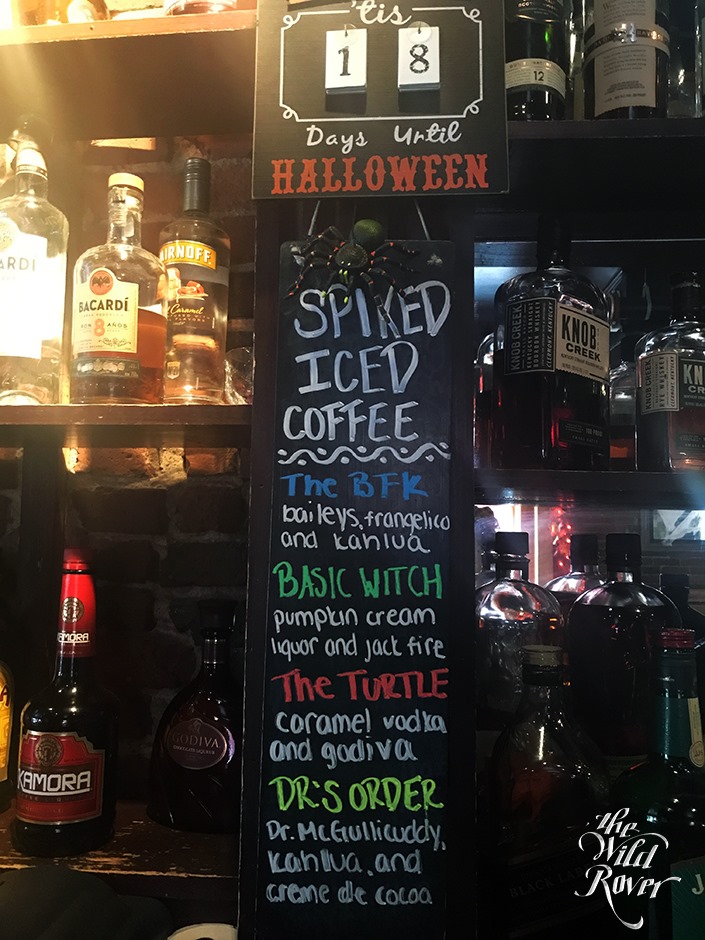 'tis
1 8
Days Until
HALLOWEEN
SPIKED
ICED
COFFEE
The BFK
baileys, frangelico
and kahlua
BASIC WITCH
pumpkin cream
liquor and jack fire
The TURTLE
caramel vodka
and godiva
DR'S ORDER
Dr. McGullicuddy,
kahlua, and
creme de cocoa
ARDI
BACARDÍ
RON 8 AÑOS
SMIRNOFF
Caramel
KAMORA
KAMORA
GODIVA
CHOCOLATE LIQUEUR
12
KNOB CREEK
KNOB
CREEK
KNOB CREEK
KN
CR
BLACK LA
J
the
Wild
Rover